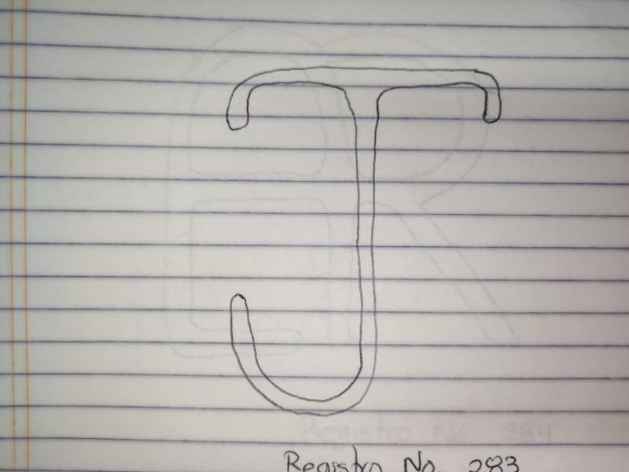 J
Registro No. 283